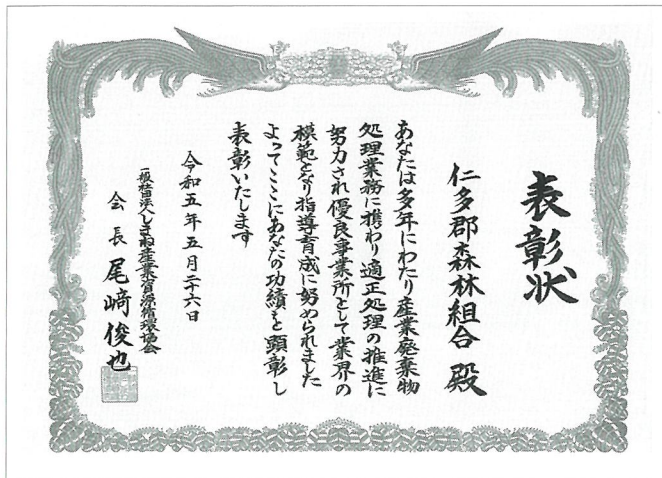 表彰状
仁多郡森林組合 殿
あなたは多年にわたり産業廃棄物
処理業務に携わり適正処理の推進に
努力され優良事業所として業界の
模範となり指導育成に努められました
よってここにあなたの功績を顕彰し
表彰いたします
令和五年五月二十六日
一般社団法人しまね産業資源循環協会
会長 尾﨑俊也